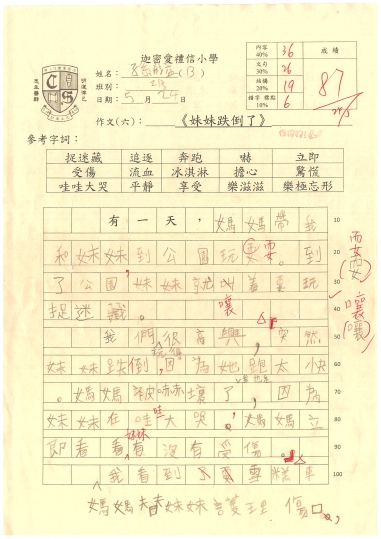 迦密愛禮信小學
姓名：(13)
班別：
日期：5月24
內容 40% 36
文句 30% 26
結構 20% 19
錯字 標點 10% 6
成績
87
作文(六)：《妹妹跌倒了》
參考字詞：
捉迷藏 追逐 奔跑 嚇 立即
受傷 流血 冰淇淋 擔心 驚慌
哇哇大哭 平靜 享受 樂滋滋 樂極忘形
有一天，媽媽帶我 10
和妹妹到公園玩耍。到 20
了公園，妹妹就叫著要玩 30
捉迷藏。 40
我們很高興，突然 50
妹妹跌倒，因為她跑太快 60
。媽媽被嚇壞了，因為 70
妹妹在哇哇大哭，媽媽立 80
即看看妹妹有沒有受傷。 90
我看到雪糕車 100
媽媽替妹妹護理傷口。
耍
嚷
嚷